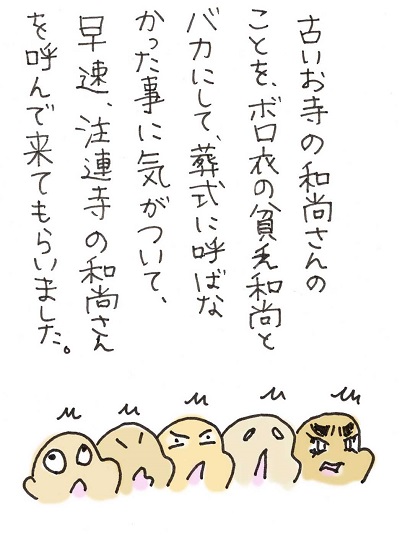 古いお寺の和尚さんの
ことを、ボロ衣の貧乏和尚と
バカにして、葬式に呼ばな
かった事に気がついて、
早速、注連寺の和尚さん
を呼んで来てもらいました。